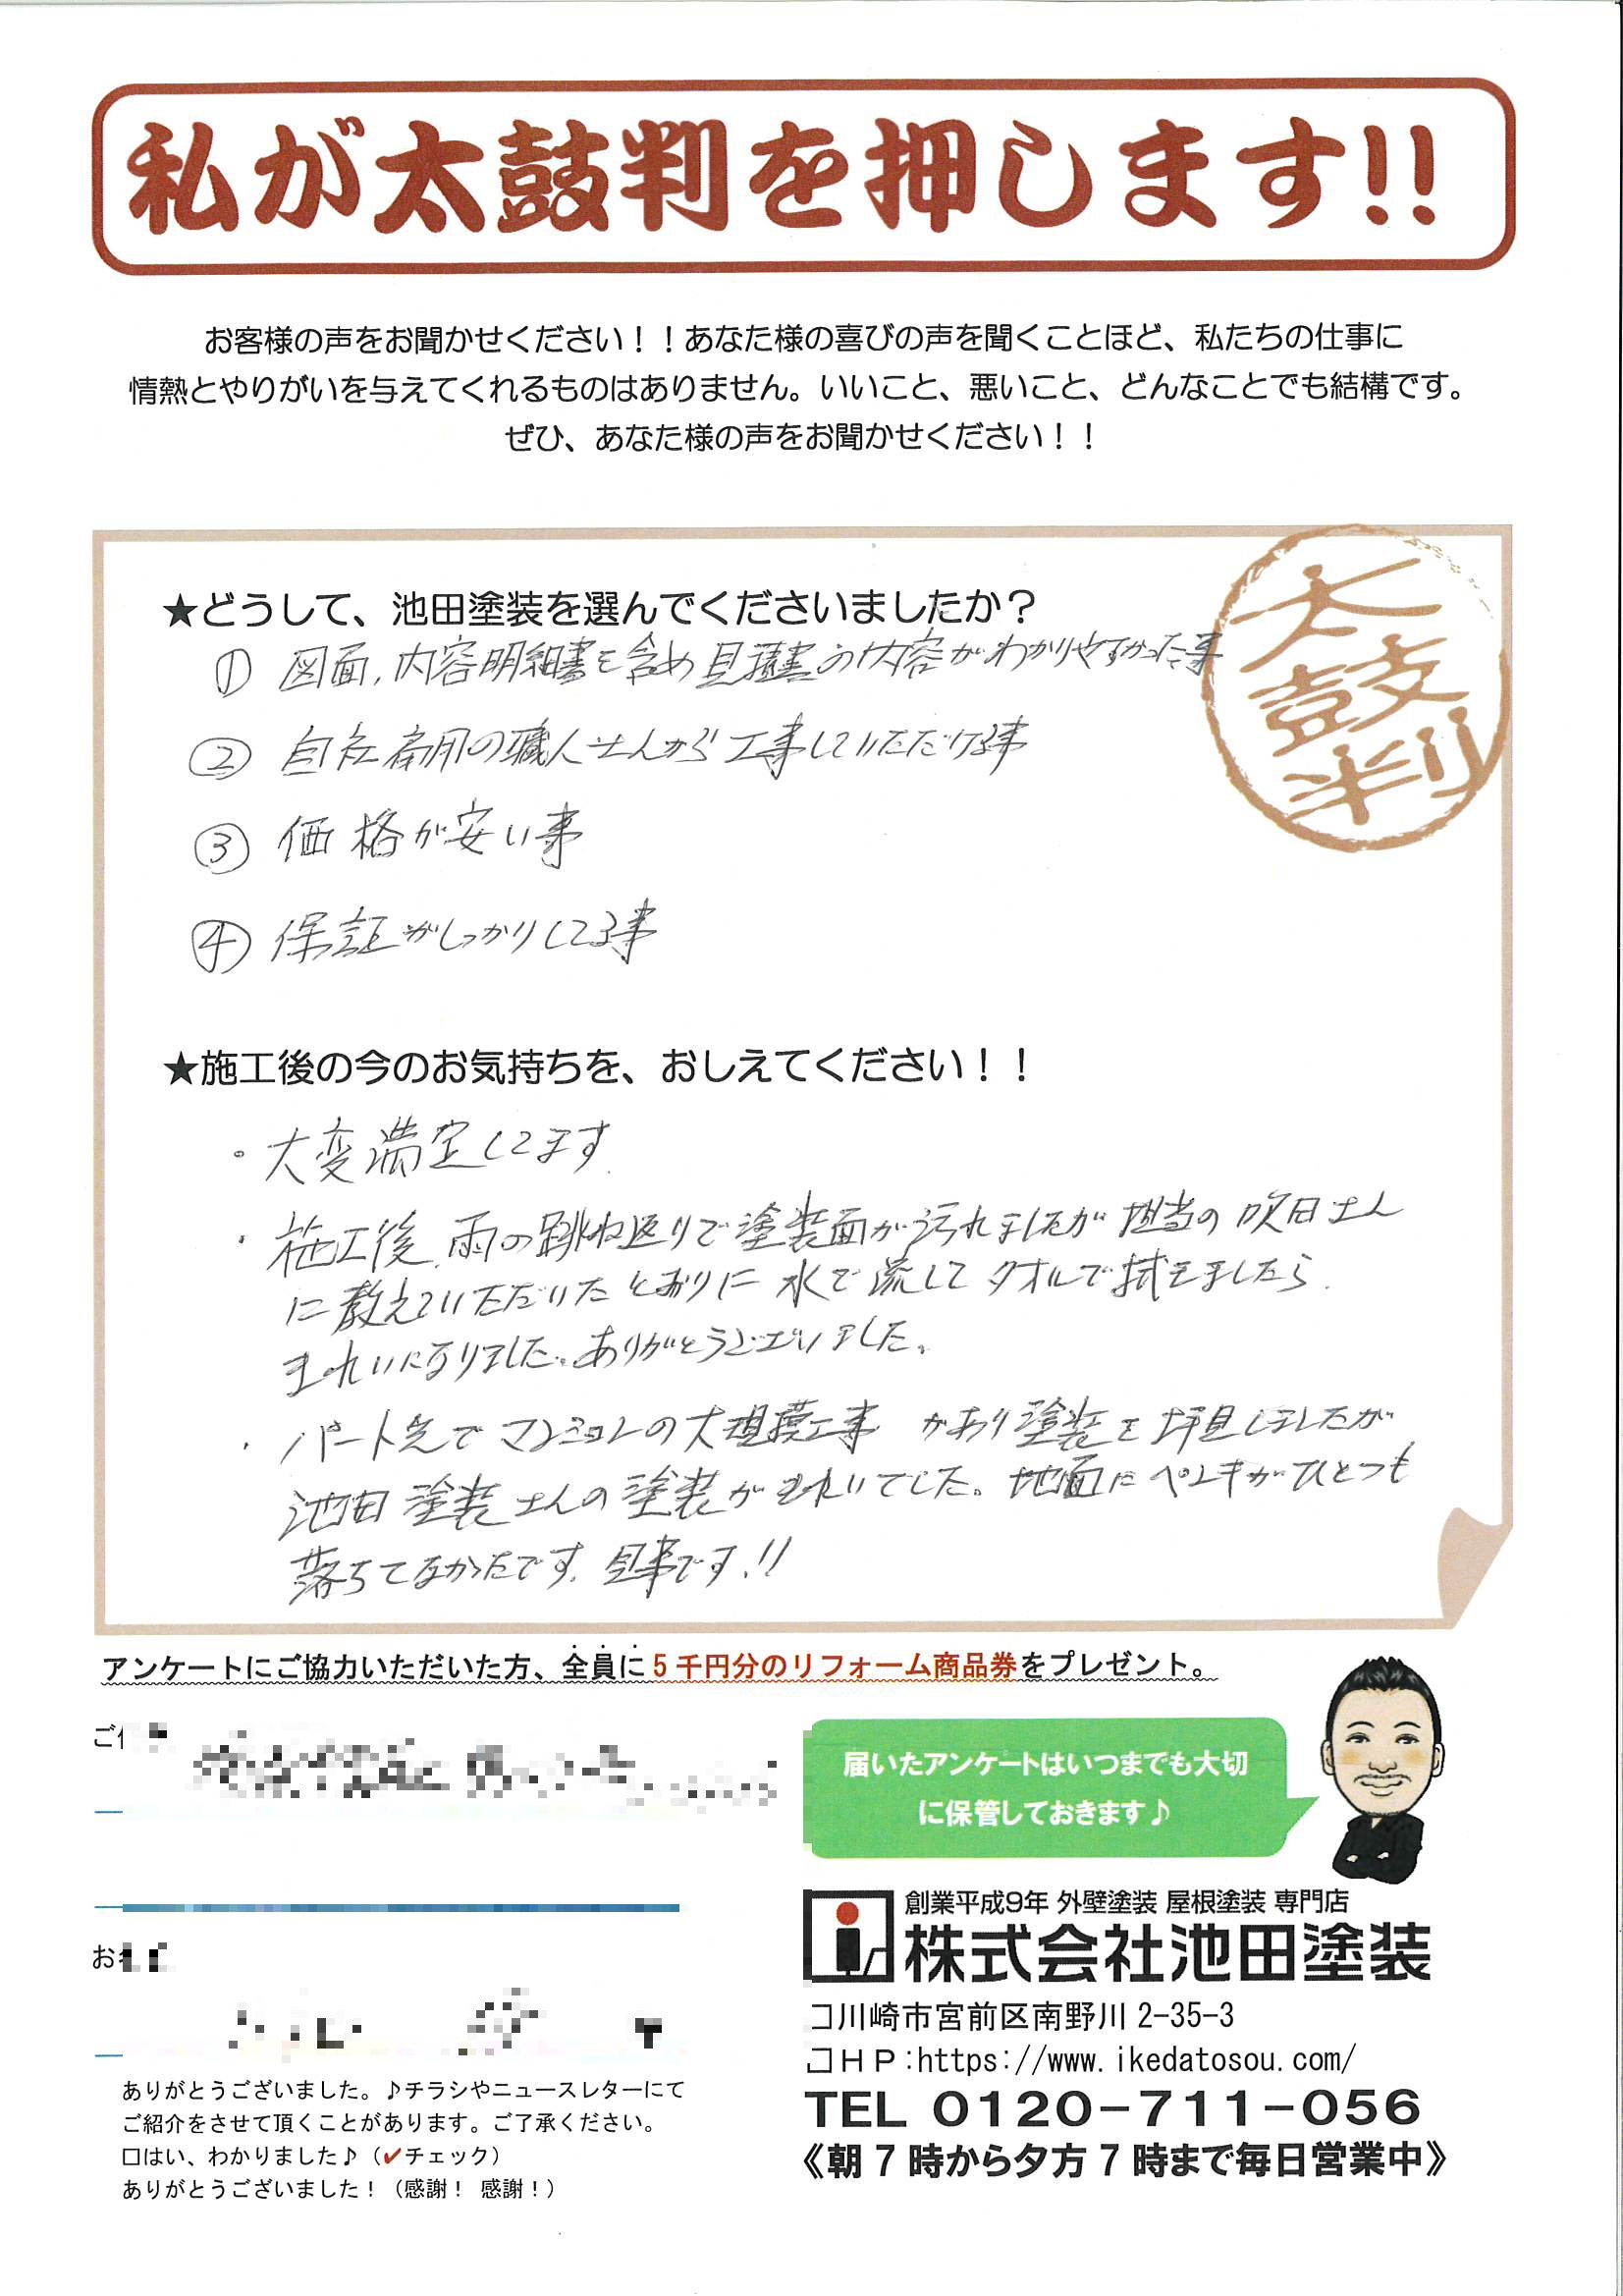 私が太鼓判を押します!!
お客様の声をお聞かせください！！あなた様の喜びの声を聞くことほど、私たちの仕事に
情熱とやりがいを与えてくれるものはありません。いいこと、悪いこと、どんなことでも結構です。
ぜひ、あなた様の声をお聞かせください！！
太鼓判
★どうして、池田塗装を選んでくださいましたか？
① 図面、内容明細書を含め見積書の内容がわかりやすかった事
② 自社雇用の職人さんが工事していただける事
③ 価格が安い事
④ 保証がしっかりしてる事
★施工後の今のお気持ちを、おしえてください！！
・大変満足してます
・施工後、雨の跳ね返りで塗装面が汚れましたが担当の吹田さん
に教えていただいたとおりに水で流してタオルで拭きましたら、
きれいになりました。ありがとうございました。
・パート先でマンションの大規模工事があり塗装を拝見しましたが
池田塗装さんの塗装がきれいでした。地面にペンキがひとつも
落ちてなかったです。見事です!!
アンケートにご協力いただいた方、全員に5千円分のリフォーム商品券をプレゼント。
届いたアンケートはいつまでも大切
に保管しておきます♪
創業平成9年 外壁塗装 屋根塗装 専門店
株式会社池田塗装
川崎市宮前区南野川2-35-3
ＨＰ:https://www.ikedatosou.com/
TEL 0120-711-056
《朝7時から夕方7時まで毎日営業中》
ありがとうございました。♪チラシやニュースレターにて
ご紹介をさせて頂くことがあります。ご了承ください。
□はい、わかりました♪（✔チェック）
ありがとうございました！（感謝！ 感謝！）